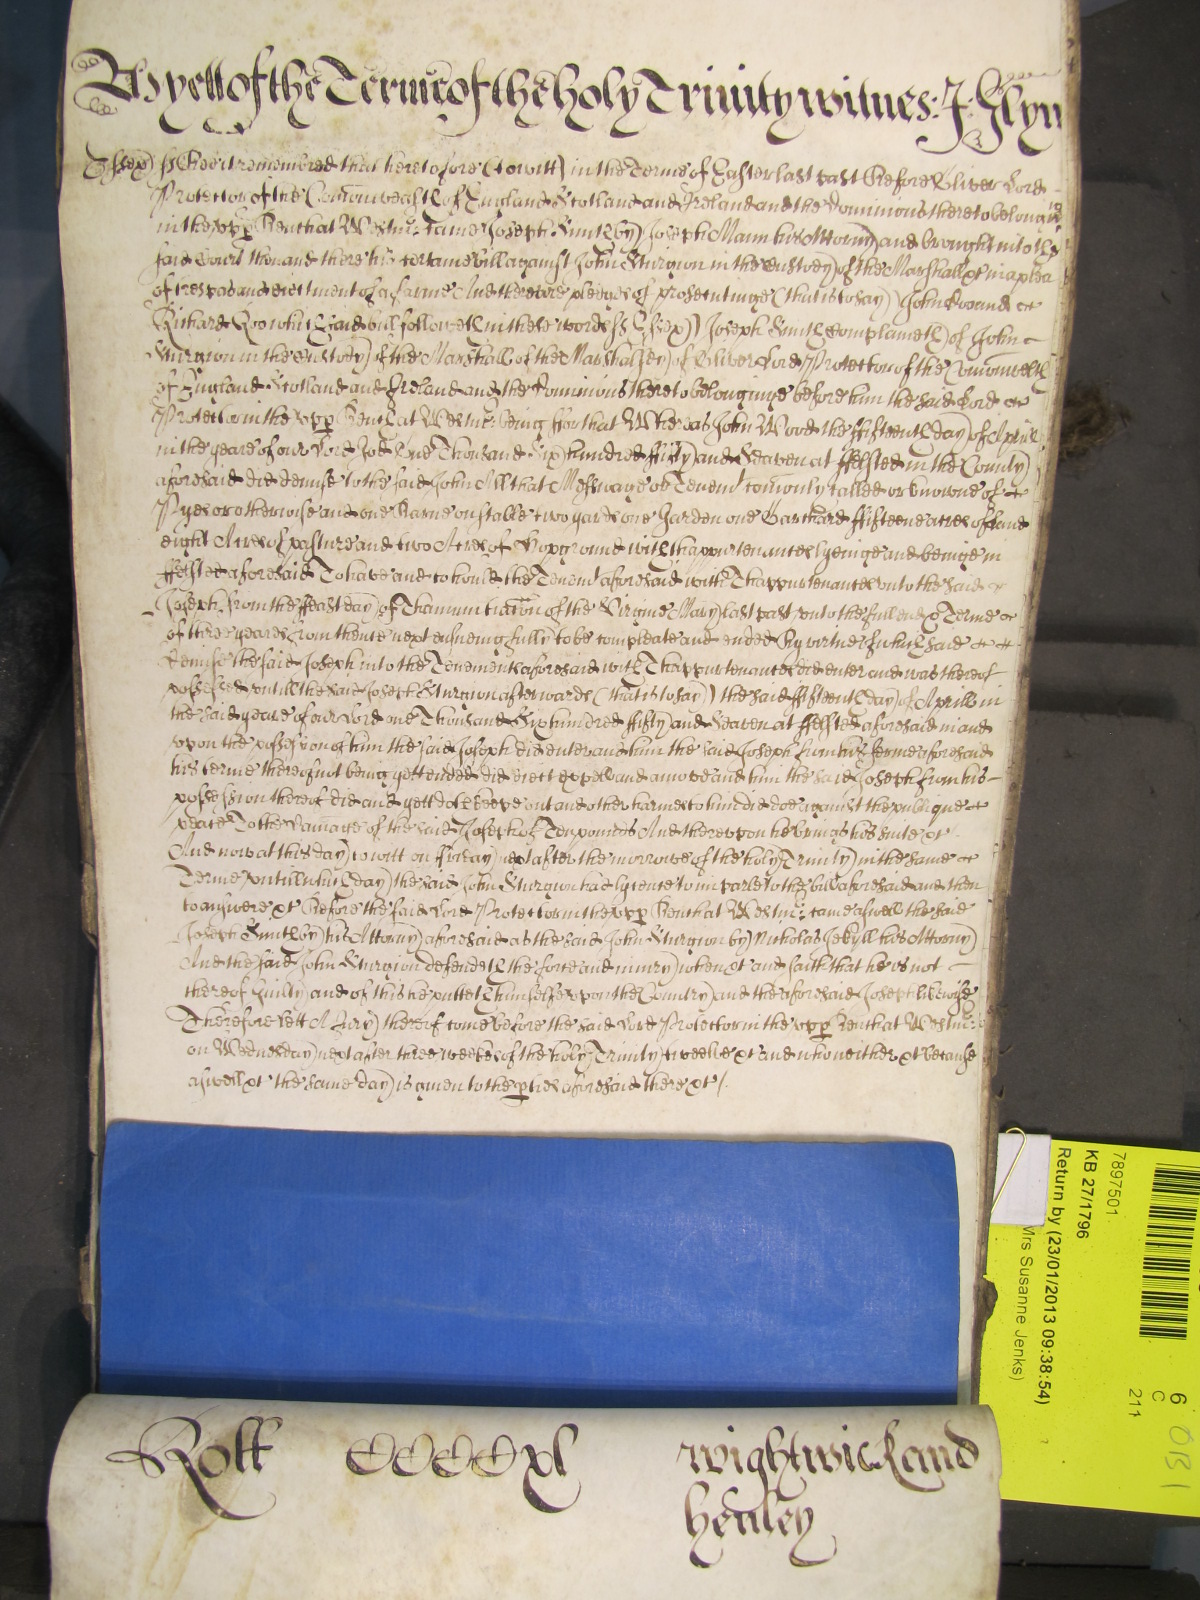 As yett of the Terme of the holy Trinity witnes: J: Glyn
Essex) ss Bee it remembred that heretofore (to witt) in the Terme of Easter last past Before Oliver Lord
Protector of the Comonwealth of England Scotland and Ireland and the Dominions thereto belonging
in the upp Bench at Westmr: came Joseph Smith by Joseph Mann his Attorny and brought into the
said Court then and there his certaine bill against John Sturgion in the custody of the Marshall &c in a plea
of trespas and eiectment of a farme And there are pledges of prosecutinge (that is to say) John Doo and
Richard Roo which said bill followeth in these words ss Essex)) Joseph Smith complaineth of John
Sturgion in the custody of the Marshall of the Marshallsey of Oliver Lord Protector of the Comonwealth
of England Scotland and Ireland and the Dominions thereto belonginge before him the said Lord
Protector in the upp Bench at Westmr: being ffor that Whereas John Wood the ffifteenth day of Aprill
in the yeare of our Lord God One Thousand Six hundred ffifty and Seaven at ffelsted in the County
aforesaid did demise to the said John All that Messuage or Tenemt comonly called or knowne of
Pyes or otherwise and one Barne one stable two yards one Garden one Barchard ffifteene acres of land
eight Acres of pasture and two Acres of Hopground with thappurtenances lyeinge and beinge in
ffelsted aforesaid To have and to hould the Tenemt aforesaid with Thappurtenances unto the said
Joseph from the ffeast day of Thanunciacon of the Virgine Mary last past unto the full end & Terme
of three yeares from thence next ensueing fully to be compleate and ended By virtue of which said
demise the said Joseph into the Tenements aforesaid with Thappurtenances did enter and was thereof
possessed untill the said Joseph Sturgion afterwards (that is to say) the said ffifteenth day of Aprill in
the said yeare of our Lord one Thousand Six hundred ffifty and Seaven at ffelsted aforesaid in and
upon the possession of him the said Joseph did enter and him the said Joseph from his ferme aforesaid
his terme thereof not being yett ended did eiect expell and amove and him the said Joseph from his
possession thereof did and yett doth keepe out and other harmes to him did doe against the publique
peace To the damage of the said Joseph of Ten pounds And thereupon he brings his suite &c
And now at this day to witt on ffriday next after the morrowe of the holy Trinity in the same
Terme untill which day the said John Sturgion had lycence to imparle to the bill aforesaid and then
to answere &c Before the said Lord Protector in the upp Bench at Westmr: came aswell the said
Joseph Smith by his Attorny aforesaid as the said John Sturgion by Nicholas Jekyll his Attorny
And the said John Sturgion defendeth the force and iniury when &c and saith that he is not
thereof Guilty and of this he putteth himselfe upon the Country and the aforesaid Joseph likewise
Therefore lett A Jury thereof come before the said Lord Protector in the upp Bench at Westmr:
on Wednesday next after three weekes of the holy Trinity twelve &c and who neither &c because
aswell &c the same day is given to the pties aforesaid there &c /.
Rott CCCCxl Wightwick and
henley
7897501
KB 27/1796
Return by (23/01/2013 09:38:54)
Mrs Susanne Jenks)
6
C
211